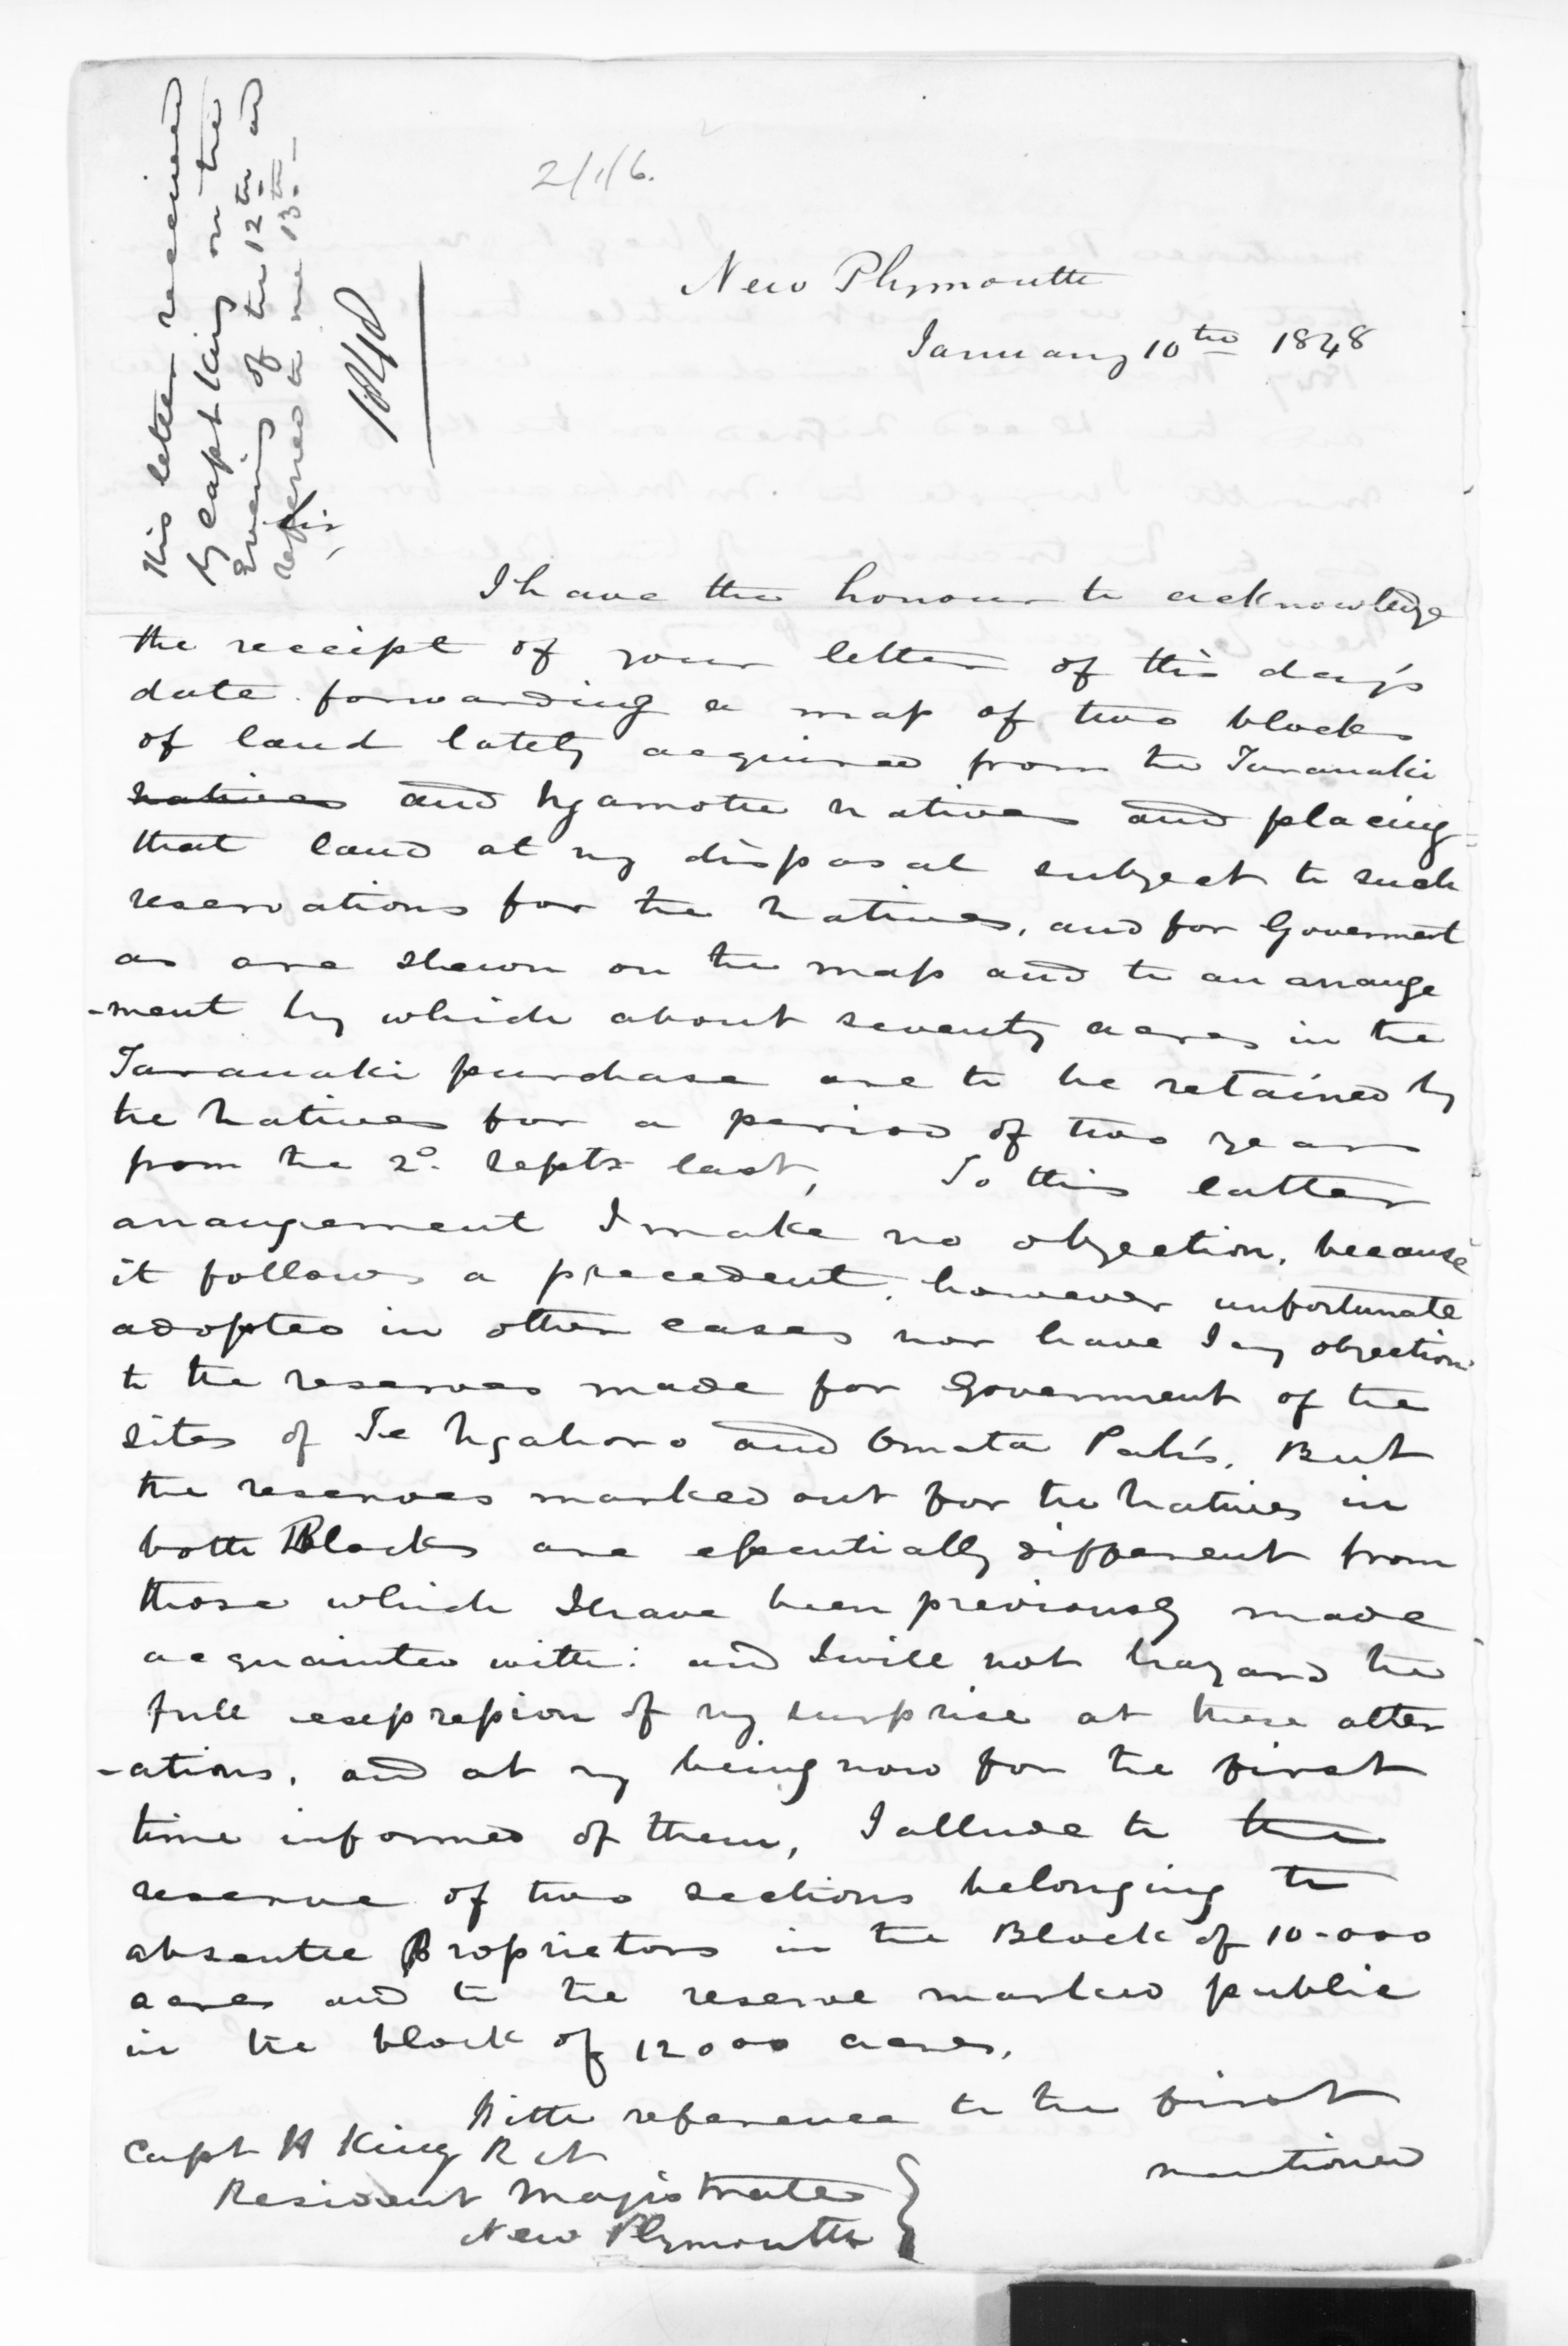 This letter received
by Capt King on the
Evening of the 12th and
referred to me 13th
2/1/6.
New Plymouth
January 10th 1848
Sir,
I have the honour to acknowledge
the receipt of your letter of this day's
date forwarding a map of two blocks
of land lately acquired from the Taranaki
natives and Ngamotu natives and placing
that land at my disposal subject to such
reservations for the Natives, and for Goverment
as are shewn on the map and to an arrange
-ment by which about seventy acres in the
Taranaki purchase are to be retained by
the Natives for a period of two years
from the 2d. Septr last, To this latter
arrangement I make no objection, because
it follows a precedent, however unfortunate
adopted in other cases nor have I any objection
to the reserves made for Government of the
sites of Te Ngahoro and Omata Pah's. But
the reserves marked out for the Natives in
both Blocks are essentially different from
those which I have been previously made
acquainted with: and I will not hazard the
full expression of my surprise at these alter
-ations, and at my being now for the first
time informed of them, I allude to the
reserve of two sections belonging to
absentee Proprietors in the Block of 10.000
acres and to the reserve marked public
in the block of 12000 acres.
With reference to the first
mentioned
Capt H King R N
Resident Magistrate
New Plymouth